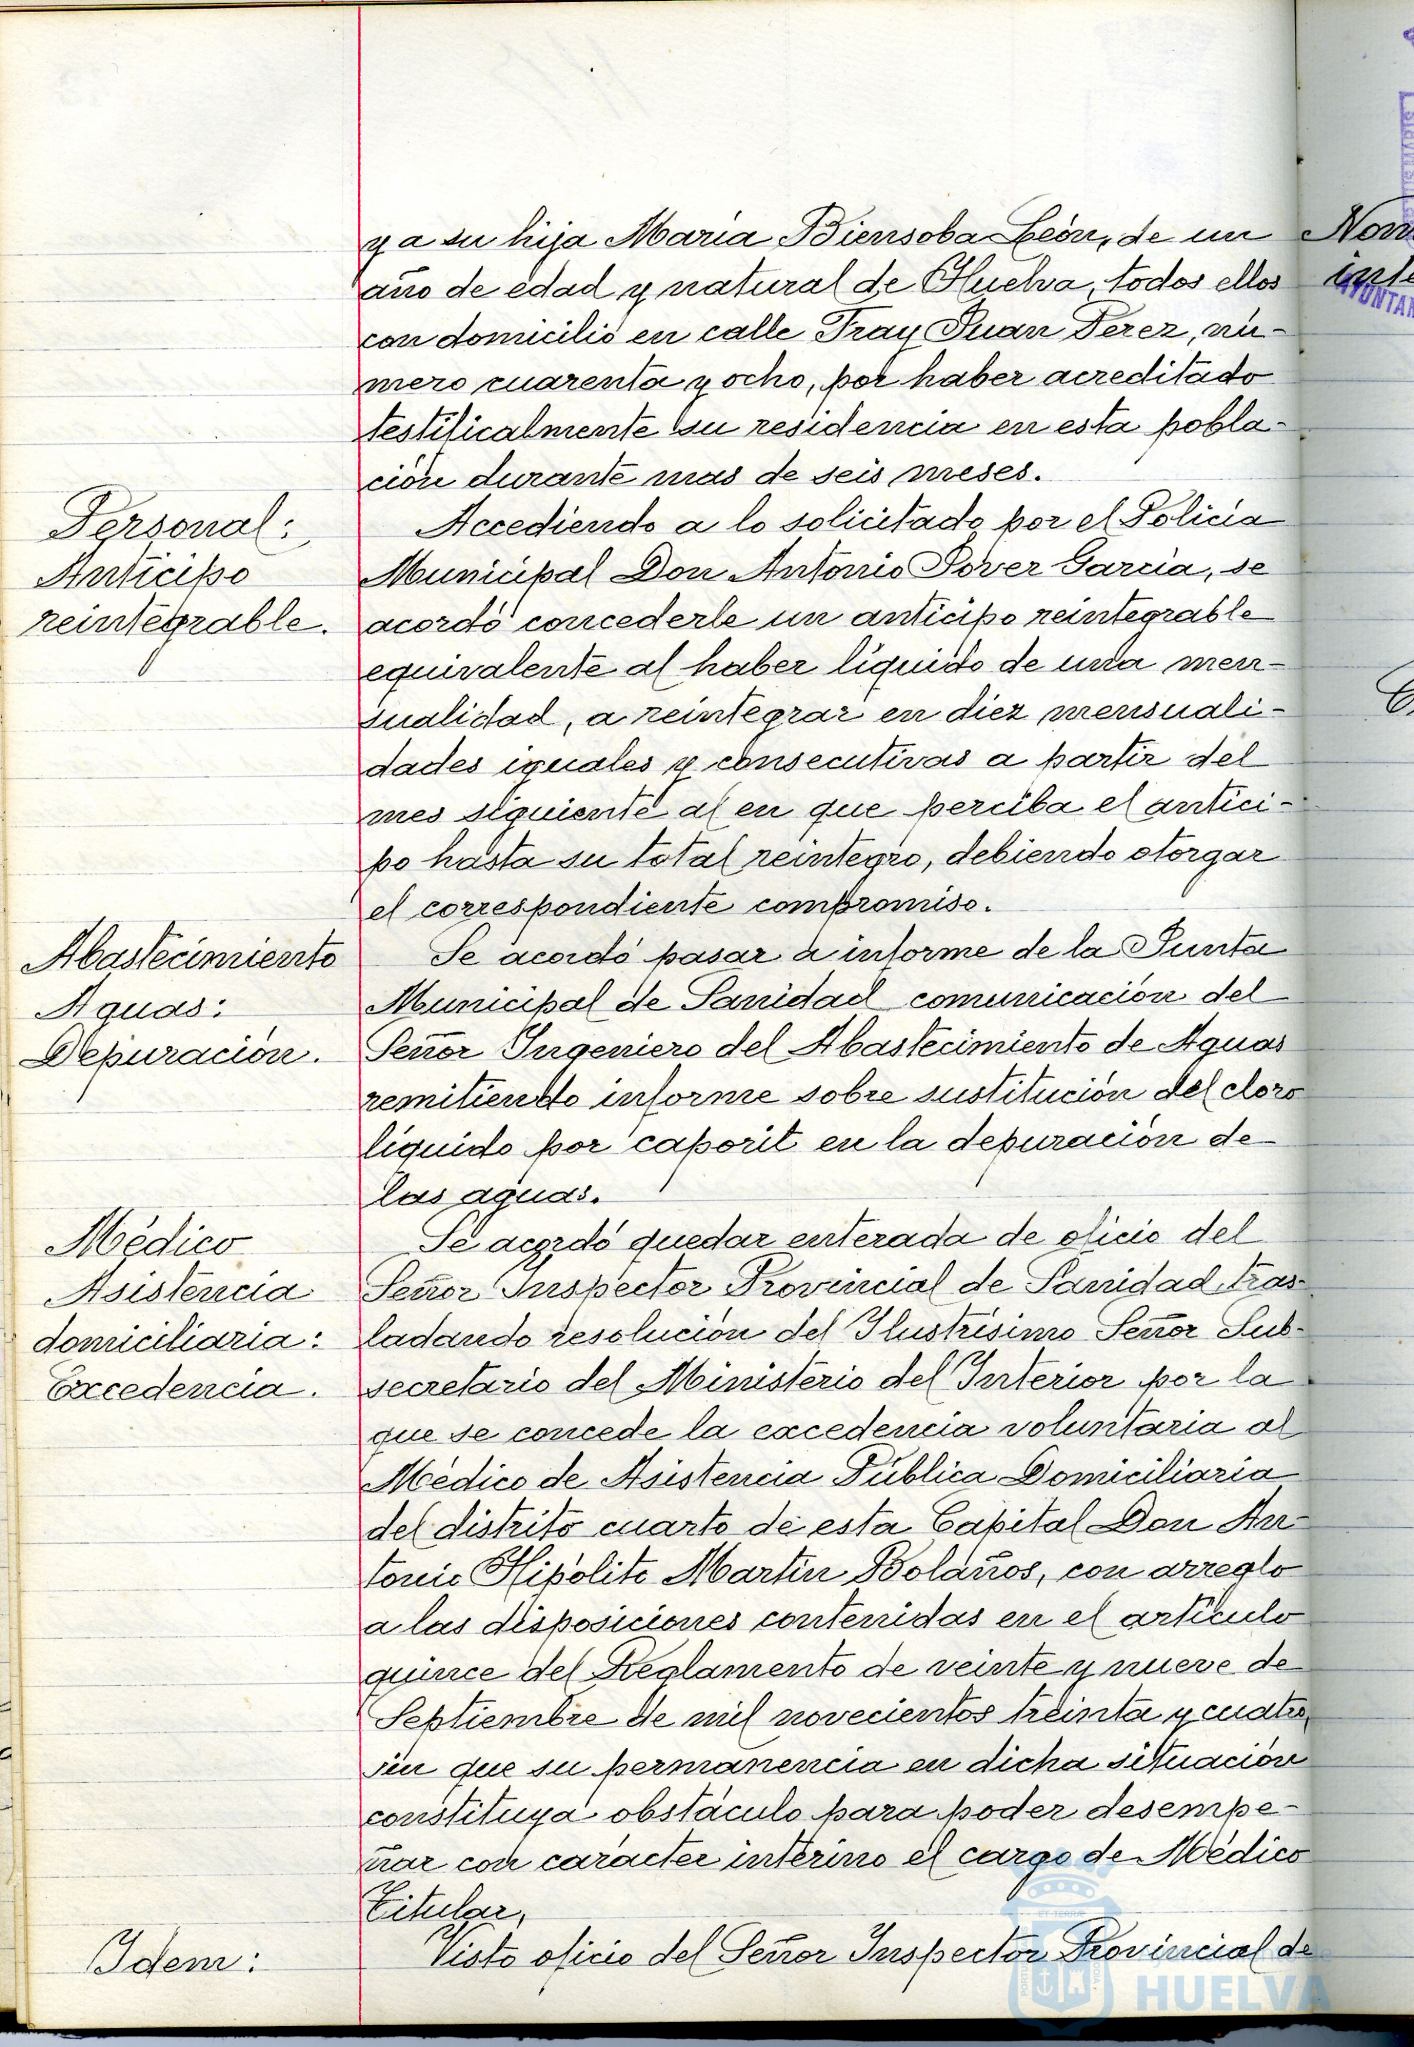 y a su hija María Biensoba León, de un
año de edad y natural de Huelva, todos ellos
con domicilio en calle Fray Juan Perez, nú-
mero cuarenta y ocho, por haber acreditado
testificalmente su residencia en esta pobla-
ción durante mas de seis meses.
Personal:
Anticipo
reintegrable.
Accediendo a lo solicitado por el Policía
Municipal Don Antonio Jover García, se
acordó concederle un anticipo reintegrable
equivalente al haber líquido de una men-
sualidad, a reintegrar en diez mensuali-
dades iguales y consecutivas a partir del
mes siguiente al en que perciba el antici-
po hasta su total reintegro, debiendo otorgar
el correspondiente compromiso.
Abastecimiento
Aguas:
Depuración.
Se acordó pasar a informe de la Junta
Municipal de Sanidad comunicación del
Señor Ingeniero del Abastecimiento de Aguas
remitiendo informe sobre sustitución del cloro
líquido por caporit en la depuración de
las aguas.
Médico
Asistencia
domiciliaria:
Excedencia.
Se acordó quedar enterada de oficio del
Señor Inspector Provincial de Sanidad tras-
ladando resolución del Ilustrísimo Señor Sub-
secretario del Ministerio del Interior por la
que se concede la excedencia voluntaria al
Médico de Asistencia Pública Domiciliaria
del distrito cuarto de esta Capital Don An-
tonio Hipólito Martín Bolaños, con arreglo
a las disposiciones contenidas en el artículo
quince del Reglamento de veinte y nueve de
Septiembre de mil novecientos treinta y cuatro,
sin que su permanencia en dicha situación
constituya obstáculo para poder desempe-
ñar con carácter interino el cargo de Médico
Titular,
Idem:
Visto oficio del Señor Inspector Provincial de
HUELVA